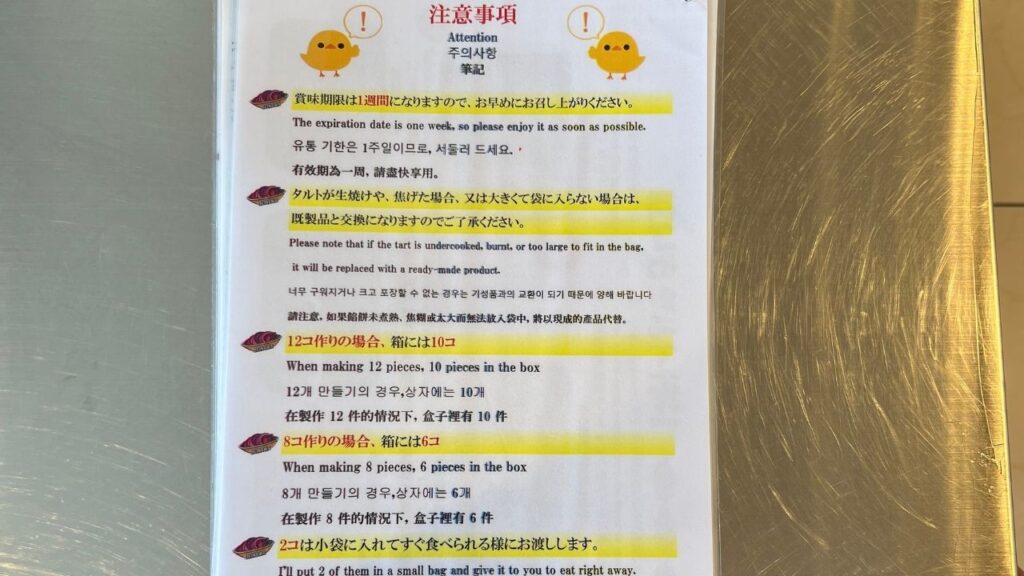 !
!
注意事項
Attention
주의사항
筆記
賞味期限は1週間になりますので、お早めにお召し上がりください。
The expiration date is one week, so please enjoy it as soon as possible.
유통 기한은 1주일이므로, 서둘러 드세요.
有效期為一周，請盡快享用。
タルトが生焼けや、焦げた場合、又は大きくて袋に入らない場合は、
既製品と交換になりますのでご了承ください。
Please note that if the tart is undercooked, burnt, or too large to fit in the bag,
it will be replaced with a ready-made product.
너무 구워지거나 크고 포장할 수 없는 경우는 기성품과의 교환이 되기 때문에 양해 바랍니다
請注意，如果餡餅未煮熟、焦糊或太大而無法放入袋中，將以現成的產品代替。
12コ作りの場合、箱には10コ
When making 12 pieces, 10 pieces in the box
12개 만들기의 경우,상자에는 10개
在製作 12 件的情況下，盒子裡有 10 件
8コ作りの場合、箱には6コ
When making 8 pieces, 6 pieces in the box
8개 만들기의 경우,상자에는 6개
在製作 8 件的情況下，盒子裡有 6 件
2コは小袋に入れてすぐ食べられる様にお渡しします。
I'll put 2 of them in a small bag and give it to you to eat right away.